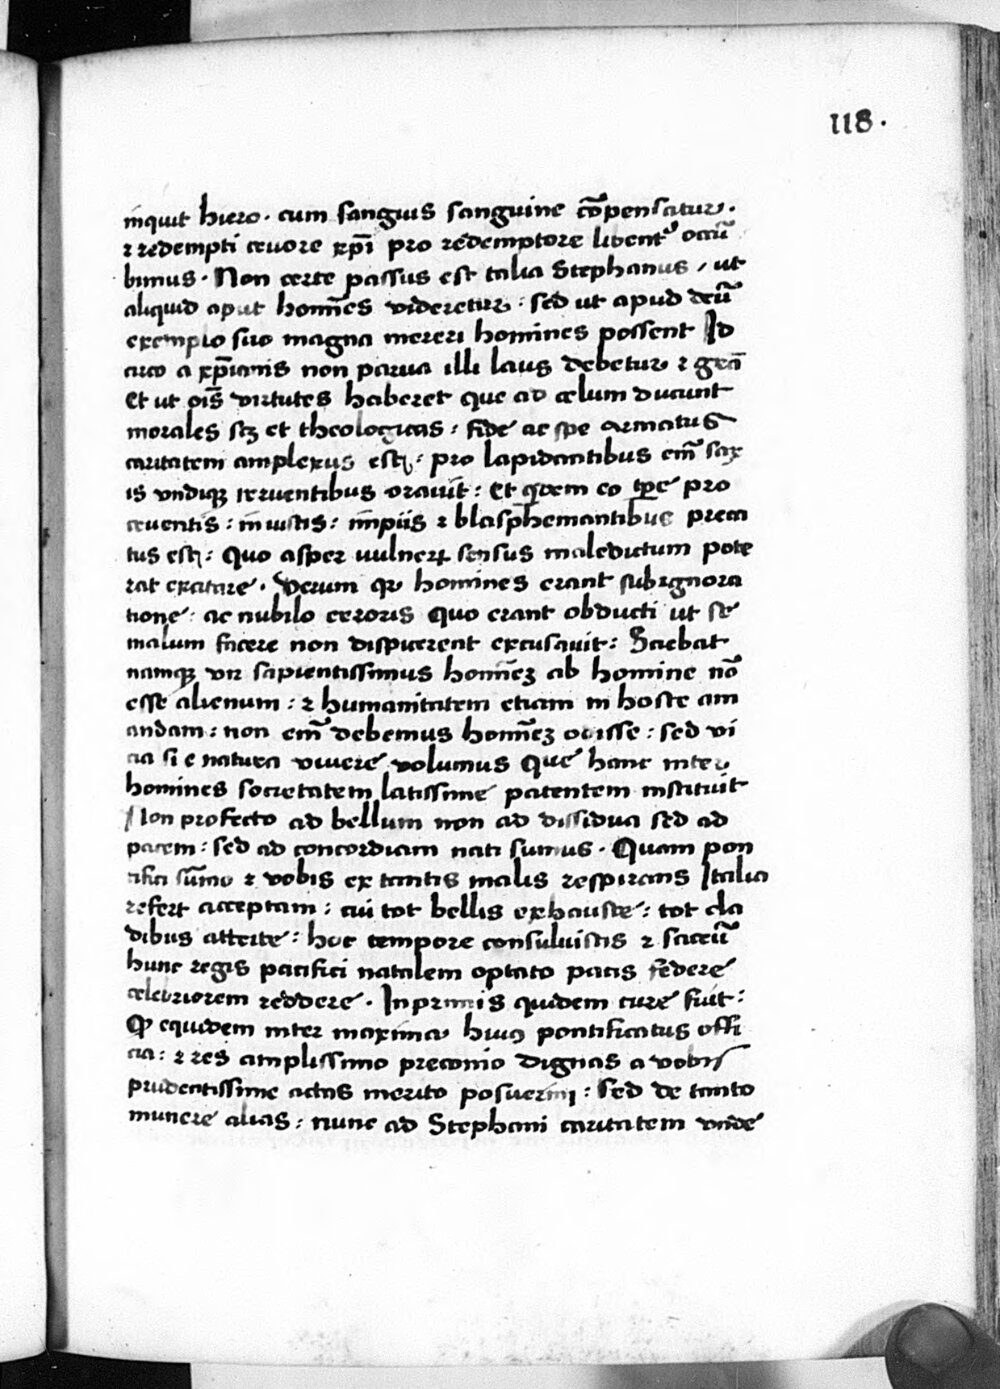 118.
inquit hiero. cum sanguis sanguine cōpensatur.
⁊ redempti cruore xp̄i pro redemptore libent᾿ occū
bimus. Non certe passus est talia Stephanus / ut
aliquid aput homīes videretur : sed ut apud deū
exemplo suo magna mereri homines possent Id
circo a xp̄ianis non parua illi laus debetur ⁊ grā
Et ut oīs virtutes haberet que ad celum ducunt
morales scꝫ et theologicas : fide ac spe armatus
caritatem amplexus est : pro lapidantibus em̄ sax
is vndiqꝫ irruentibus orauit : Et qdem eo tp̄e pro
ceruentis : iniustis : impiis ⁊ blasphemantibus preca
tus est : Quo asper uulnerꝝ sensus maledictum pote
rat excitare. Verum qꝛ homines erant sub ignora
tione : ac nubilo erroris quo erant obducti ut se
malum facere non dispicerent excusauit : Sciebat
namqꝫ vir sapientissimus homīeꝫ ab homine nō
esse alienum : ⁊ humanitatem etiam in hoste am
andam : non em̄ debemus homīeꝫ odisse : sed vi
cia si e natura viuere volumus Que hanc inter
homines societatem latissime patentem instituit
Non profecto ad bellum non ad dissidua sed ad
pacem : sed ad concordiam nati sumus. Quam pon
tifici sūmo ⁊ vobis ex tantis malis respirans Italia
refert acceptam : cui tot bellis exhauste : tot cla
dibus attrite : hoc tempore consuluistis ⁊ facrū
hunc regis pacifici natalem optato pacis federe
celebriorem reddere. Inprimis quidem cure fuit :
Qꝫ equidem inter maxima huiꝯ pontificatus offi
cia : ⁊ res amplissimo preconio dignas a vobis
prudentissime actas merito posuerim : sed de tanto
munere alias : nunc ad Stephani caritatem vnde